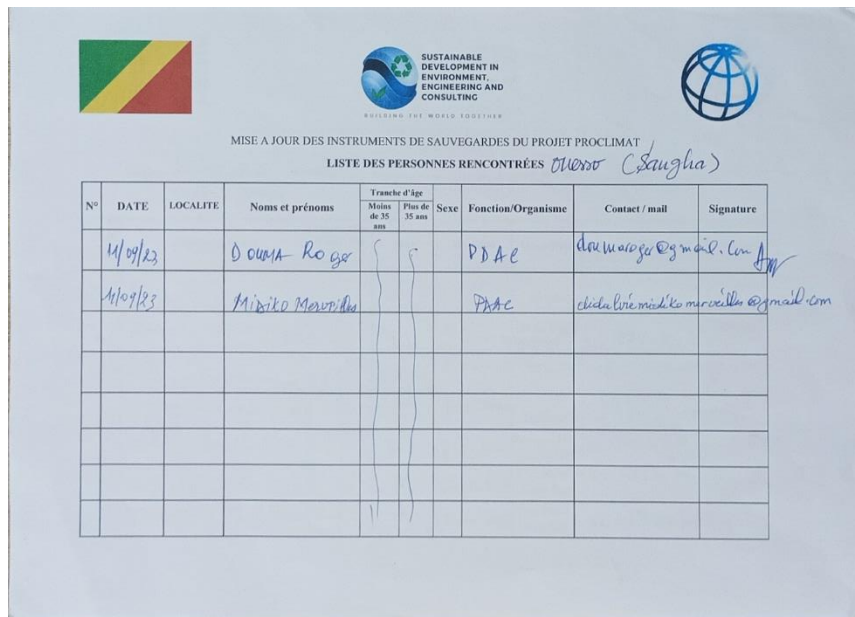 SUSTAINABLE
DEVELOPMENT IN
ENVIRONMENT,
ENGINEERING AND
CONSULTING
BUILDING THE WORLD TOGETHER
MISE A JOUR DES INSTRUMENTS DE SAUVEGARDES DU PROJET PROCLIMAT
LISTE DES PERSONNES RENCONTRÉES Ouesso (Sangha)
N° DATE LOCALITE Noms et prénoms Tranche d'âge Moins de 35 ans Plus de 35 ans Sexe Fonction/Organisme Contact / mail Signature
11/09/23 DOUMA Roger DDAC doumaroger@gmail.com
11/09/23 Midiko @gmail.com